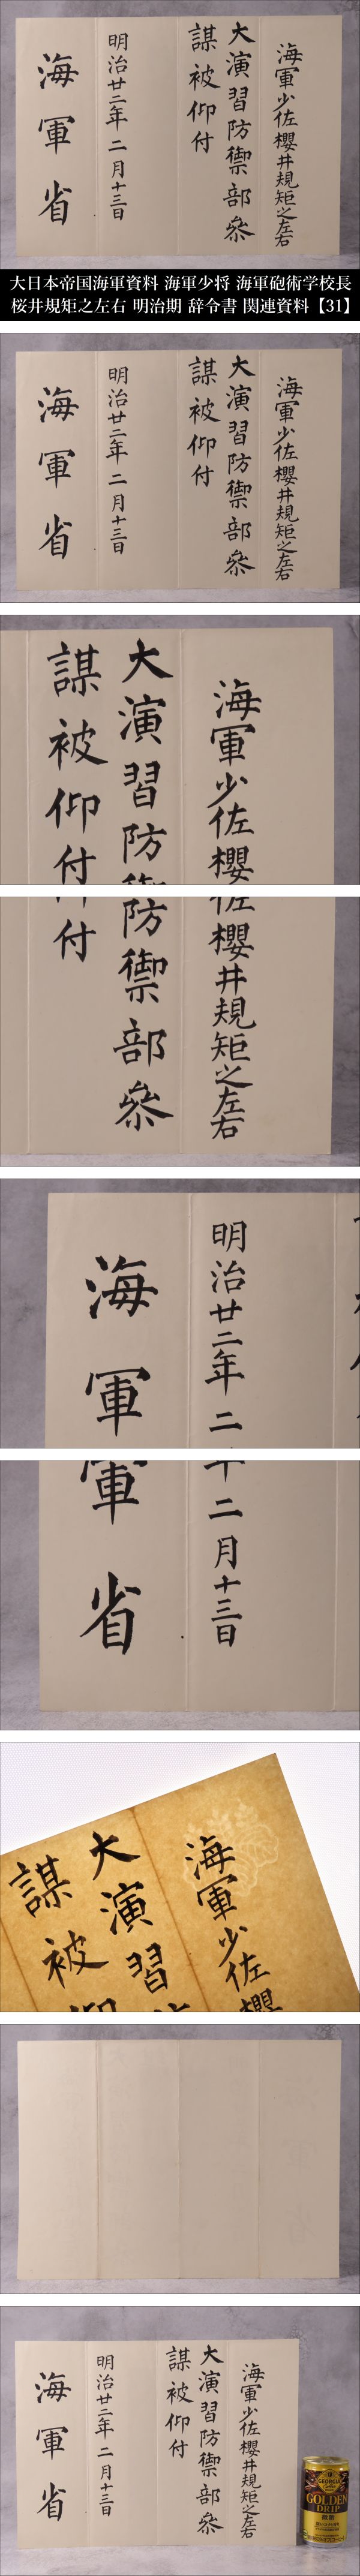 海軍少佐櫻井規矩之左右
大演習防禦部參
謀被仰付
明治廿二年二月十三日
海軍省
大日本帝国海軍資料 海軍少将 海軍砲術学校長
桜井規矩之左右 明治期 辞令書 関連資料【31】
海軍少佐櫻井規矩之左右
大演習防禦部參
謀被仰付
明治廿二年二月十三日
海軍省
海軍少佐櫻
大演習防
謀被仰付
佐櫻井規矩之左右
防禦部參
付
明治廿二年二
海軍
年二月十三日
軍省
海軍少佐櫻
大演習
謀被仰
海軍少佐櫻井規矩之左右
大演習防禦部參
謀被仰付
明治廿二年二月十三日
海軍省
GEORGIA
GOLDEN
DRIP
微糖